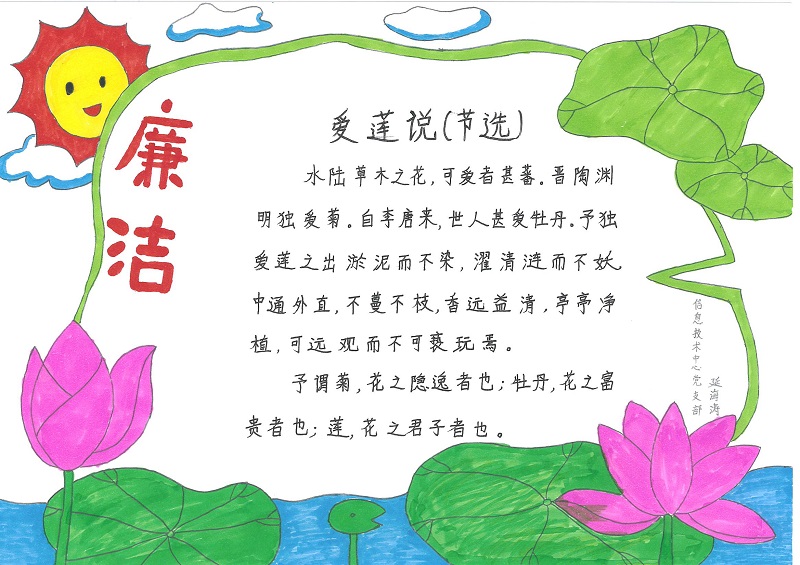 廉洁
爱莲说(节选)
水陆草木之花,可爱者甚蕃。晋陶渊
明独爱菊。自李唐来,世人甚爱牡丹。予独
爱莲之出淤泥而不染,濯清涟而不妖,
中通外直,不蔓不枝,香远益清,亭亭净
植,可远观而不可亵玩焉。
予谓菊,花之隐逸者也;牡丹,花之富
贵者也;莲,花之君子者也。
信息技术中心党支部
延海涛